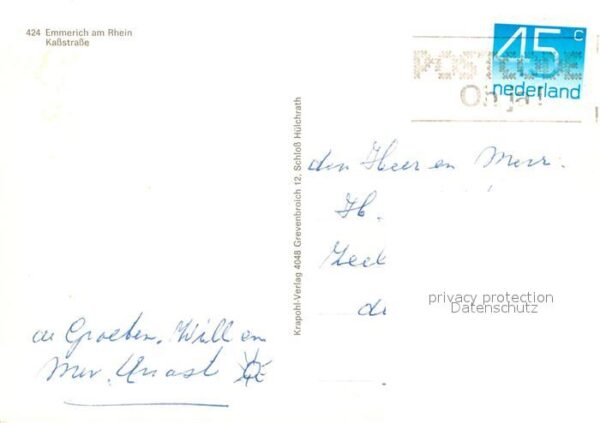 424 Emmerich am Rhein
Kaßstraße
45 c
nederland
POSTCODE
Oh ja!
Krapohl-Verlag 4048 Grevenbroich 12, Schloß Hülchrath
den Heer en Mevr.
H.
de Groeten. Will en
Mev.
privacy protection
Datenschutz